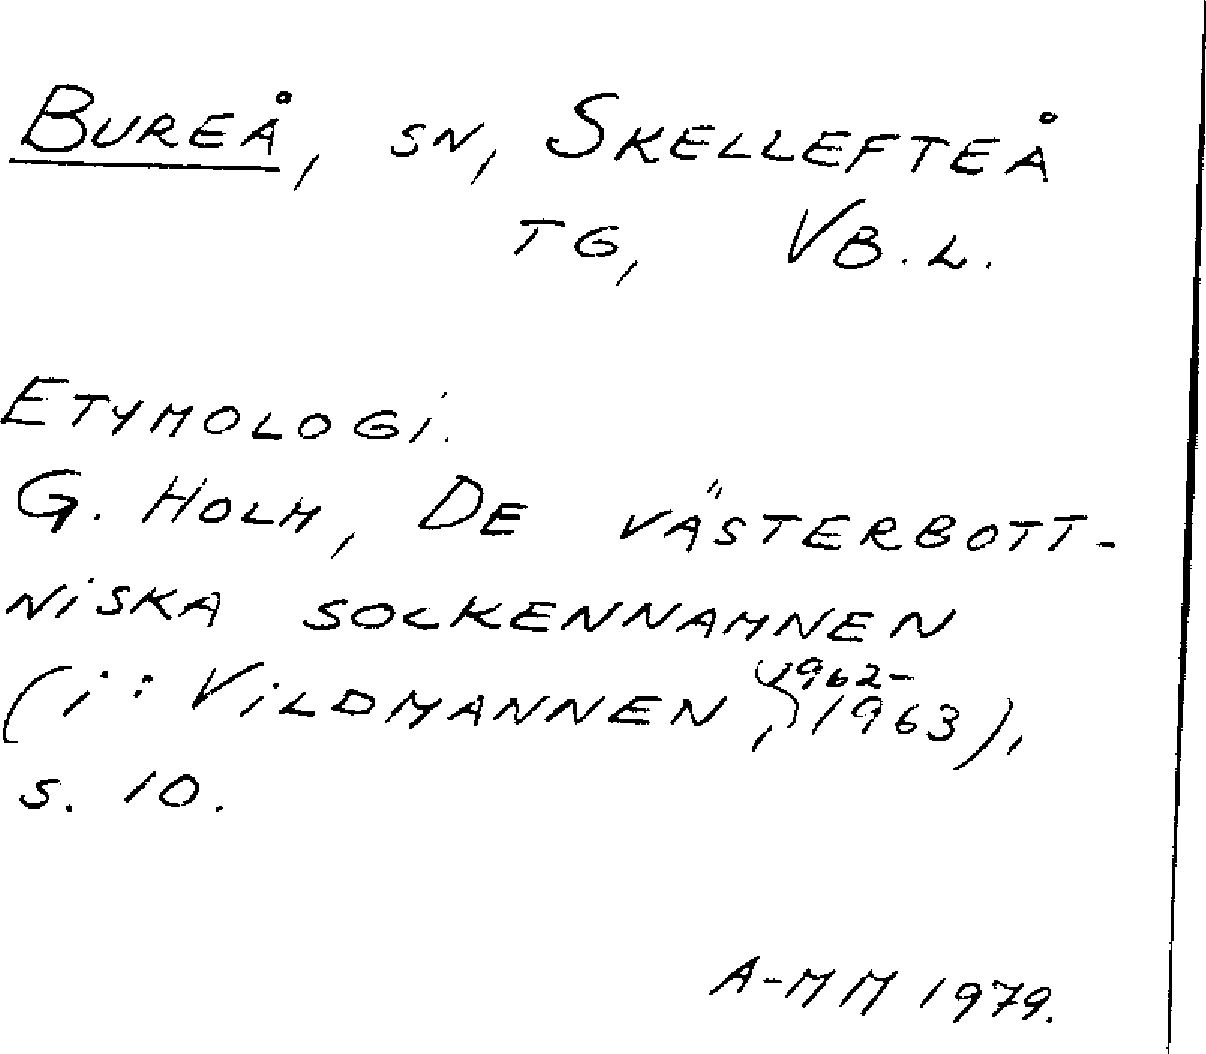 BUREÅ, SN, SKELLEFTEÅ
TG, VB.L.
ETYMOLOGi.
G. HOLM, DE VÄSTERBOTT-
NiSKA SOCKENNAMNEN
(i: ViLDMANNEN, 1962-1963),
S. 10.
A-MM 1979.